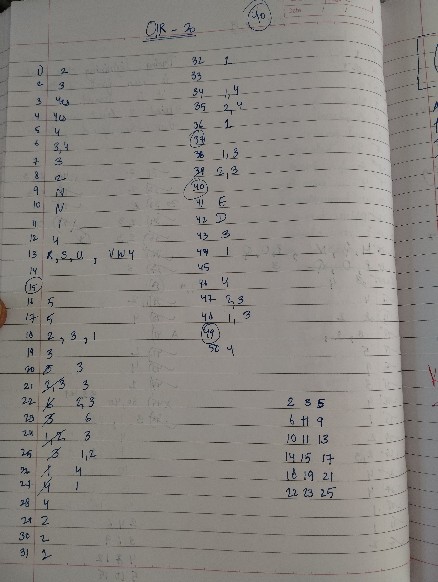 40
QR - 30
1) 2
2 3
3 yes
4 yes
5 4
6 3,4
7 3
8 2
9 N
10 N
11 1
12 4
13 R, S, U, V W Y
14
15
16 5
17 5
18 2, 3, 1
19 3
20 3
21 2,3 3
22 2,3
23 3 6
24 1,2 3
25 3 1,2
4
27 4 1
28 4
29 2
30 2
31 2
32 1
33
34 1,4
35 2,4
36 1
37
38 1,3
39 2,3
40
41 E
42 D
43 3
44 1
45
46 4
47 2,3
48 1, 3
49
50 4
2 3 5
6 11 9
10 11 13
14 15 17
18 19 21
22 23 25